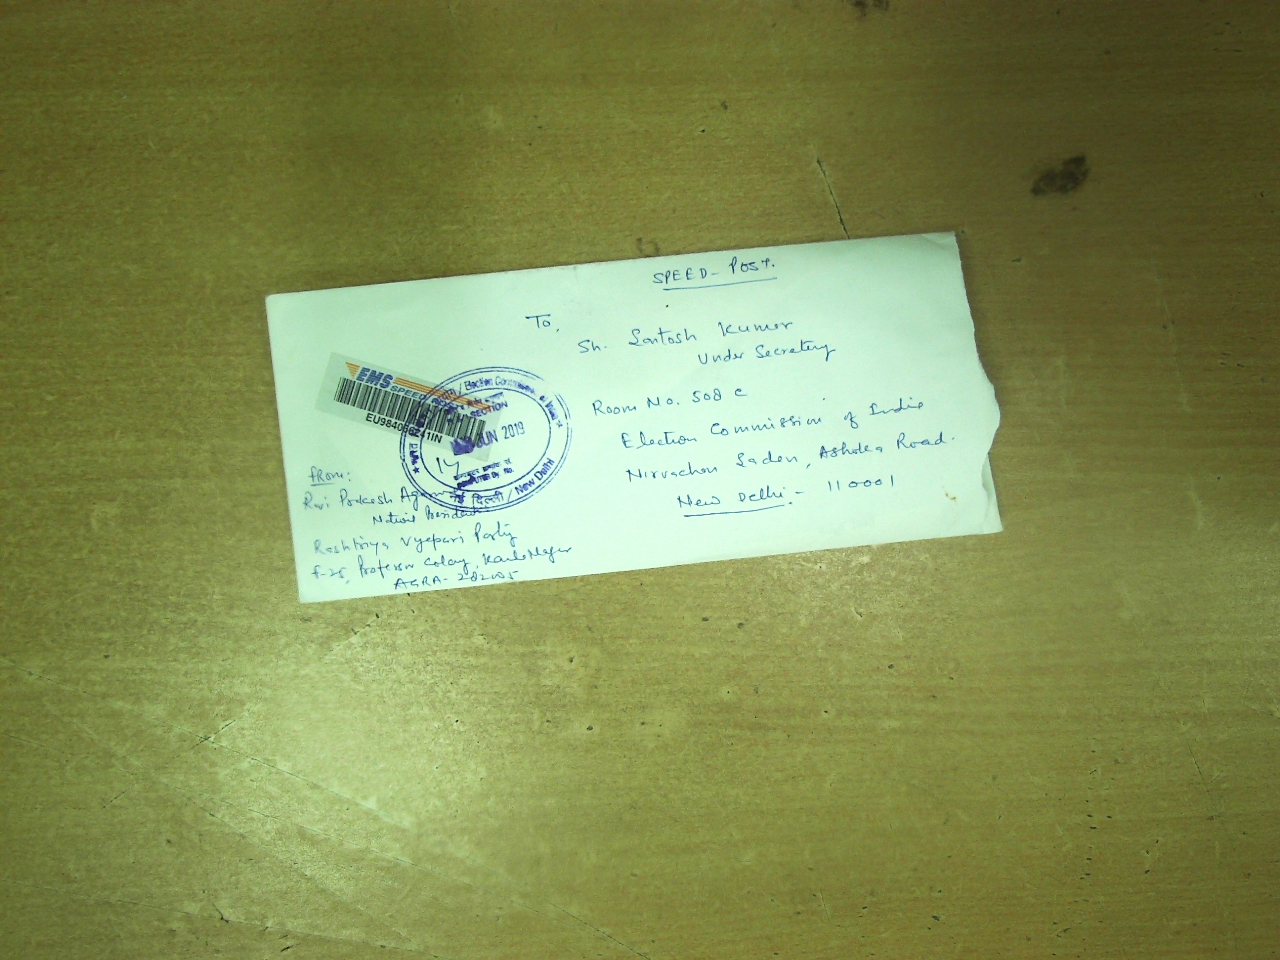 SPEED- POST.
To,
Sh. Santosh Kumar
Under Secretary
Room No. 508 C
Election Commission of India
Nirvachan Sadan, Ashoka Road.
New Delhi - 110001
EMS SPEED
EU984
41IN
Election Commission of India
SECTION
JUN 2019
14
नई दिल्ली / New Delhi
From:
Ravi Prakash
Rashtriya Vyapari Party
F-25, Professor Colony, Kamla Nagar
AGRA- 282005